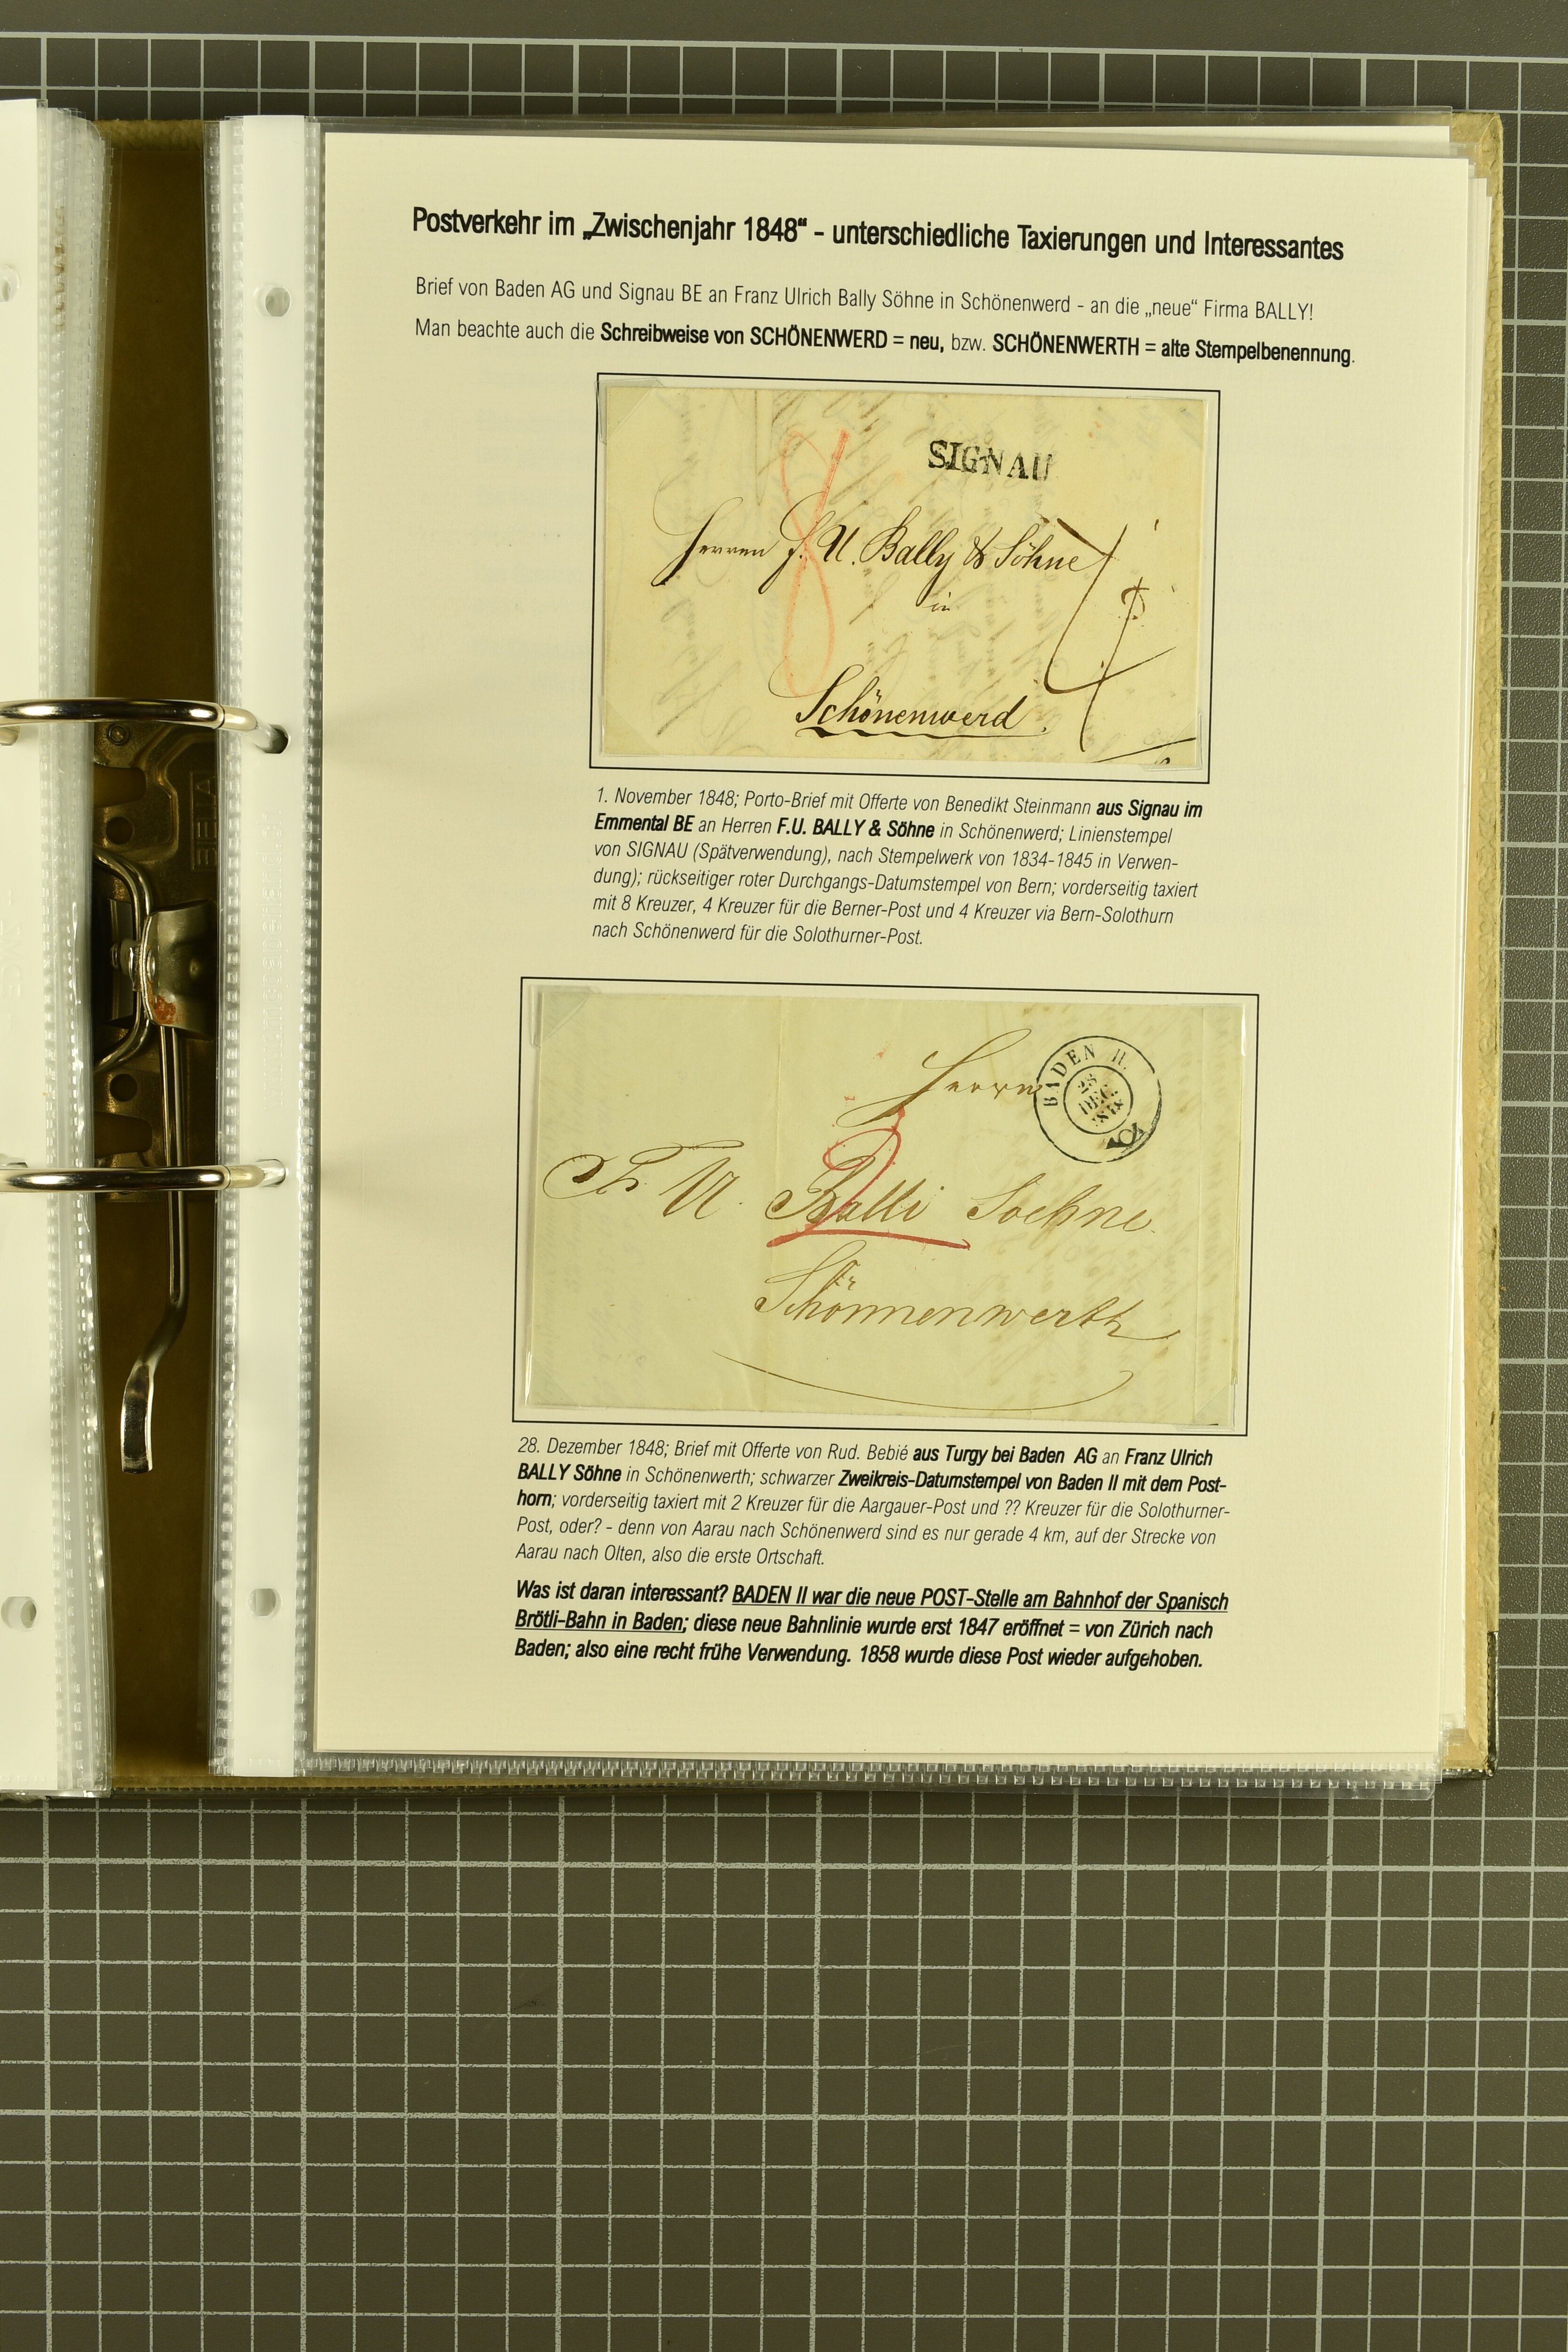 Postverkehr im „Zwischenjahr 1848“ - unterschiedliche Taxierungen und Interessantes
Brief von Baden AG und Signau BE an Franz Ulrich Bally Söhne in Schönenwerd - an die „neue“ Firma BALLY!
Man beachte auch die Schreibweise von SCHÖNENWERD = neu, bzw. SCHÖNENWERTH = alte Stempelbenennung.
SIGNAU
8
Herren F. U. Bally & Söhne
in
Schönenwerd.
1. November 1848; Porto-Brief mit Offerte von Benedikt Steinmann aus Signau im
Emmental BE an Herren F.U. BALLY & Söhne in Schönenwerd; Linienstempel
von SIGNAU (Spätverwendung), nach Stempelwerk von 1834-1845 in Verwen-
dung); rückseitiger roter Durchgangs-Datumstempel von Bern; vorderseitig taxiert
mit 8 Kreuzer, 4 Kreuzer für die Berner-Post und 4 Kreuzer via Bern-Solothurn
nach Schönenwerd für die Solothurner-Post.
BADEN II.
28
DEC.
1848
Herrn
Fr. U. Balli Soehne
2
Schönnenwerth
28. Dezember 1848; Brief mit Offerte von Rud. Bebié aus Turgy bei Baden AG an Franz Ulrich
BALLY Söhne in Schönenwerth; schwarzer Zweikreis-Datumstempel von Baden II mit dem Post-
horn; vorderseitig taxiert mit 2 Kreuzer für die Aargauer-Post und ?? Kreuzer für die Solothurner-
Post, oder? - denn von Aarau nach Schönenwerd sind es nur gerade 4 km, auf der Strecke von
Aarau nach Olten, also die erste Ortschaft.
Was ist daran interessant? BADEN II war die neue POST-Stelle am Bahnhof der Spanisch
Brötli-Bahn in Baden; diese neue Bahnlinie wurde erst 1847 eröffnet = von Zürich nach
Baden; also eine recht frühe Verwendung. 1858 wurde diese Post wieder aufgehoben.